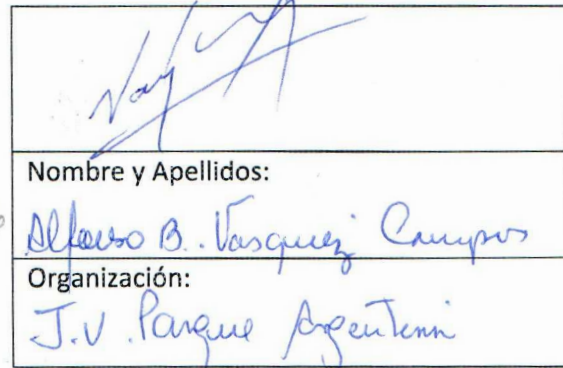 Nombre y Apellidos:
Alfonso B. Vasquez Campos
Organización:
J.V. Parque Argentina